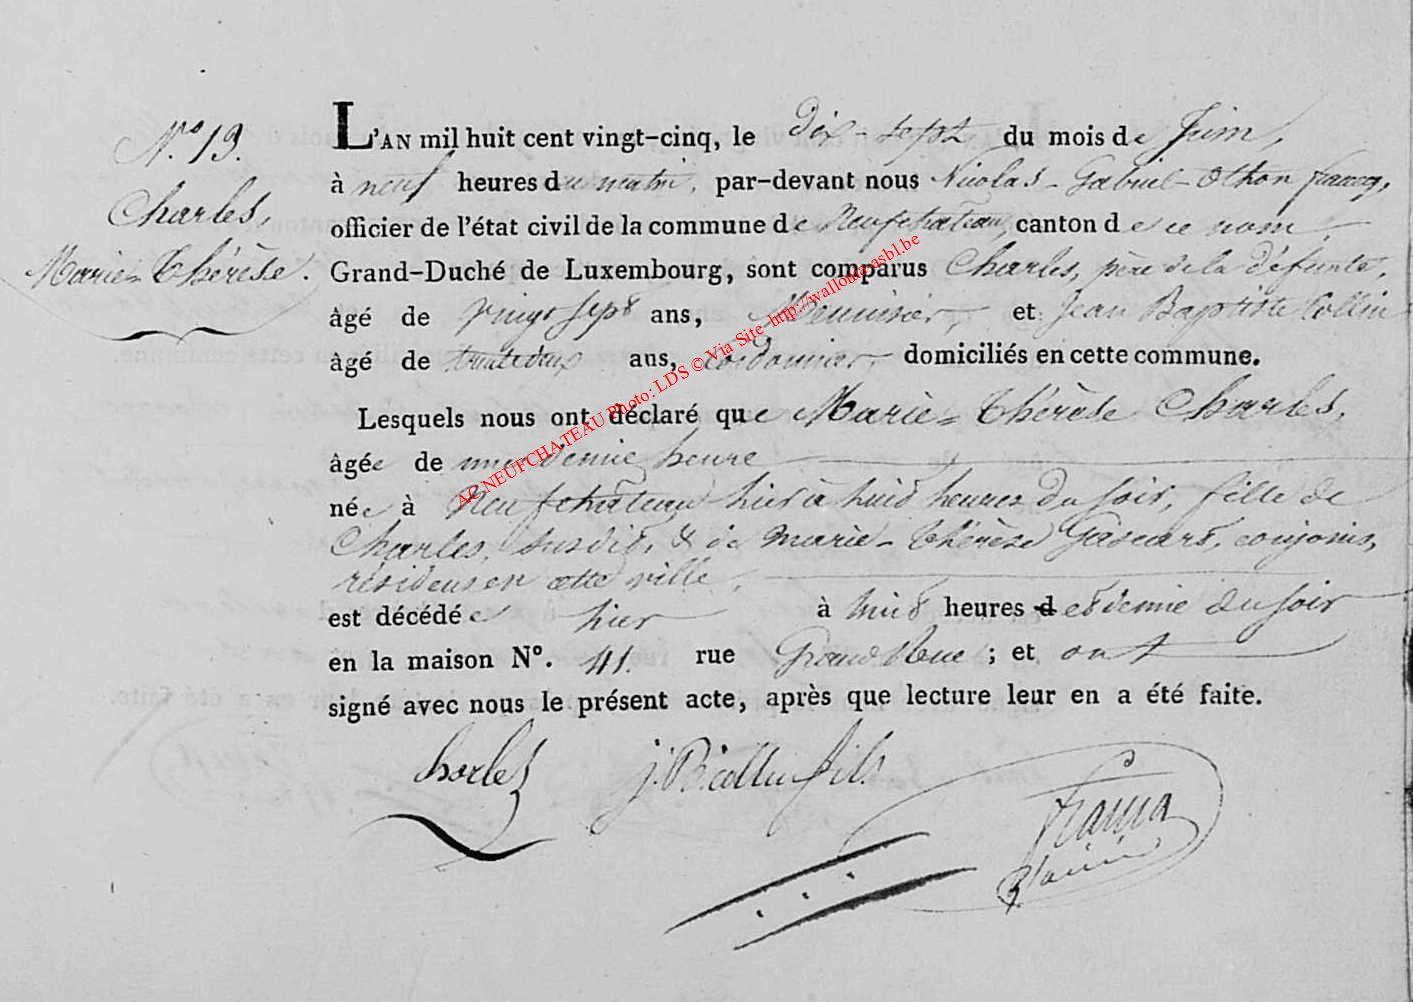 N.º 19.
Charles,
Marie-Thérèse.
L'AN mil huit cent vingt-cinq, le dix-sept du mois de Juin,
à neuf heures du matin, par-devant nous Nicolas-Gabriel-Othon francq,
officier de l'état civil de la commune de Neufchateau, canton de ce nom,
Grand-Duché de Luxembourg, sont comparus Charles, père de la défunte,
âgé de vingt sept ans, Menuisier, et Jean Baptiste Collin
âgé de trente deux ans, cordonnier, domiciliés en cette commune.
Lesquels nous ont déclaré que Marie-Thérèse Charles,
âgée de une demie heure
née à Neufchâteau hier à huit heures du soir, fille de
Charles, susdit, & de Marie-Thérèse Gascard, conjoins,
résidens en cette ville,
est décédée hier à huit heures et demie du soir
en la maison Nº. 41. rue Grand Rue ; et ont
signé avec nous le présent acte, après que lecture leur en a été faite.
Charles J. B. Collin fils
AC NEUFCHATEAU Photo: LDS © Via Site http://wallonia-asbl.be